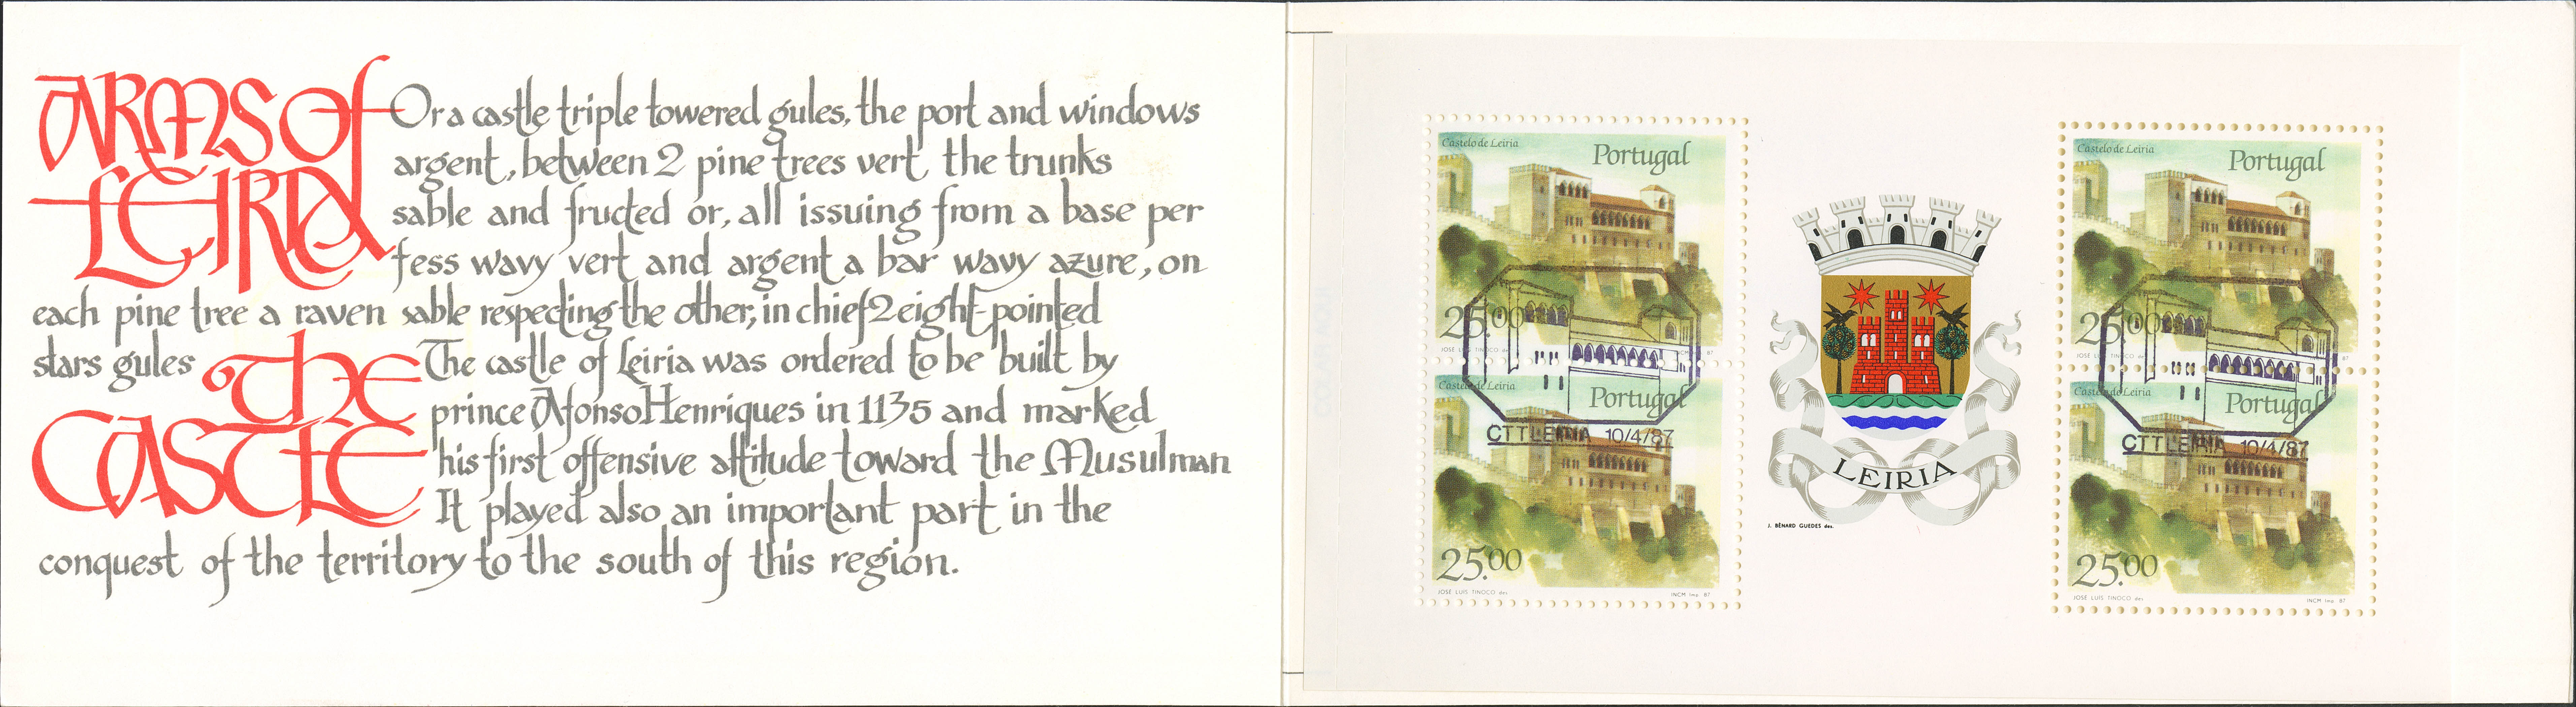 ARMS of
LEIRIA
Or a castle triple towered gules, the port and windows
argent, between 2 pine trees vert, the trunks
sable and fructed or, all issuing from a base per
fess wavy vert and argent a bar wavy azure, on
each pine tree a raven sable respecting the other; in chief 2 eight-pointed
stars gules
The
CASTLE
The castle of Leiria was ordered to be built by
prince Afonso Henriques in 1135 and marked
his first offensive attitude toward the Musulman
It played also an important part in the
conquest of the territory to the south of this region.
Castelo de Leiria
Portugal
25.00
JOSÉ LUÍS TINOCO des
INCM Imp 87
Castelo de Leiria
Portugal
CTT LEIRIA 10/4/87
25.00
JOSÉ LUÍS TINOCO des
INCM Imp 87
LEIRIA
J. BÉNARD GUEDES des.
Castelo de Leiria
Portugal
25.00
JOSÉ LUÍS TINOCO des
87
Castelo de Leiria
Portugal
CTT LEIRIA 10/4/87
25.00
JOSÉ LUÍS TINOCO des
INCM Imp 87